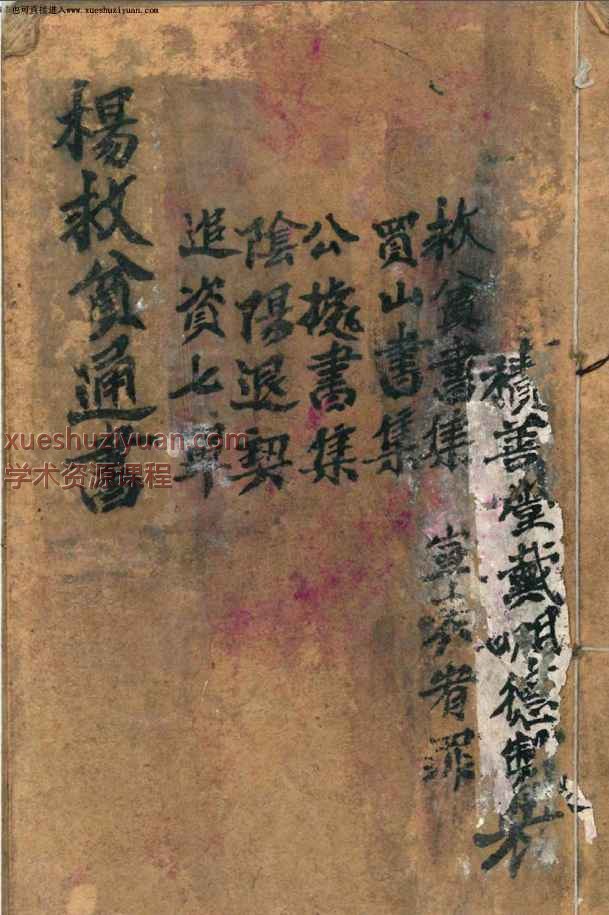 也可直接进入www.xueshuziyuan.com
積善堂戴明德製
救貧書集
買山書集
公據書集
陰陽退契
追資七單
楊救貧通書
xueshuziyuan.com
学术资源课程